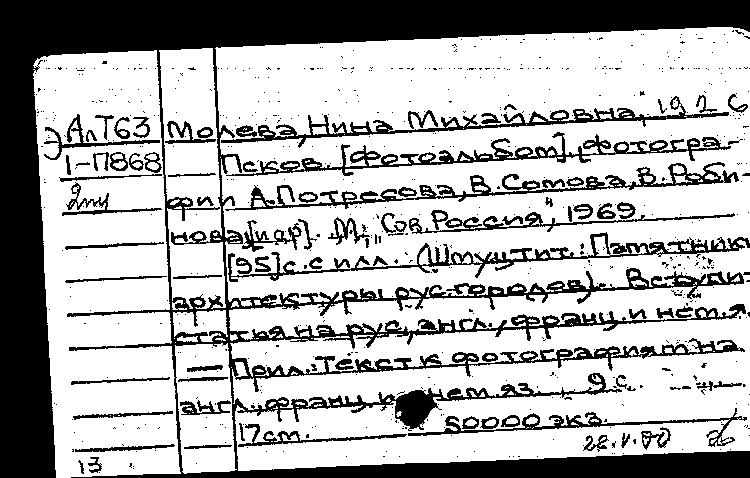 АлТ63 Молева, Нина Михайловна, 1926
1-П868 Псков. [Фотоальбом]. [Фотогра-
2пи фии А.Потресова, В.Сотова, В.Роби-
нова[и др]. М., "Сов.Россия", 1969.
[95]с.с илл. (Шмуцтит.: Памятники
архитектуры рус.городов). Вступи-
статья на рус., англ., франц. и нем.я.
— Прил.: Текст к фотографиям на
англ., франц. и нем яз. 9 с.
17 см. 50000 экз.
28.V.70
13